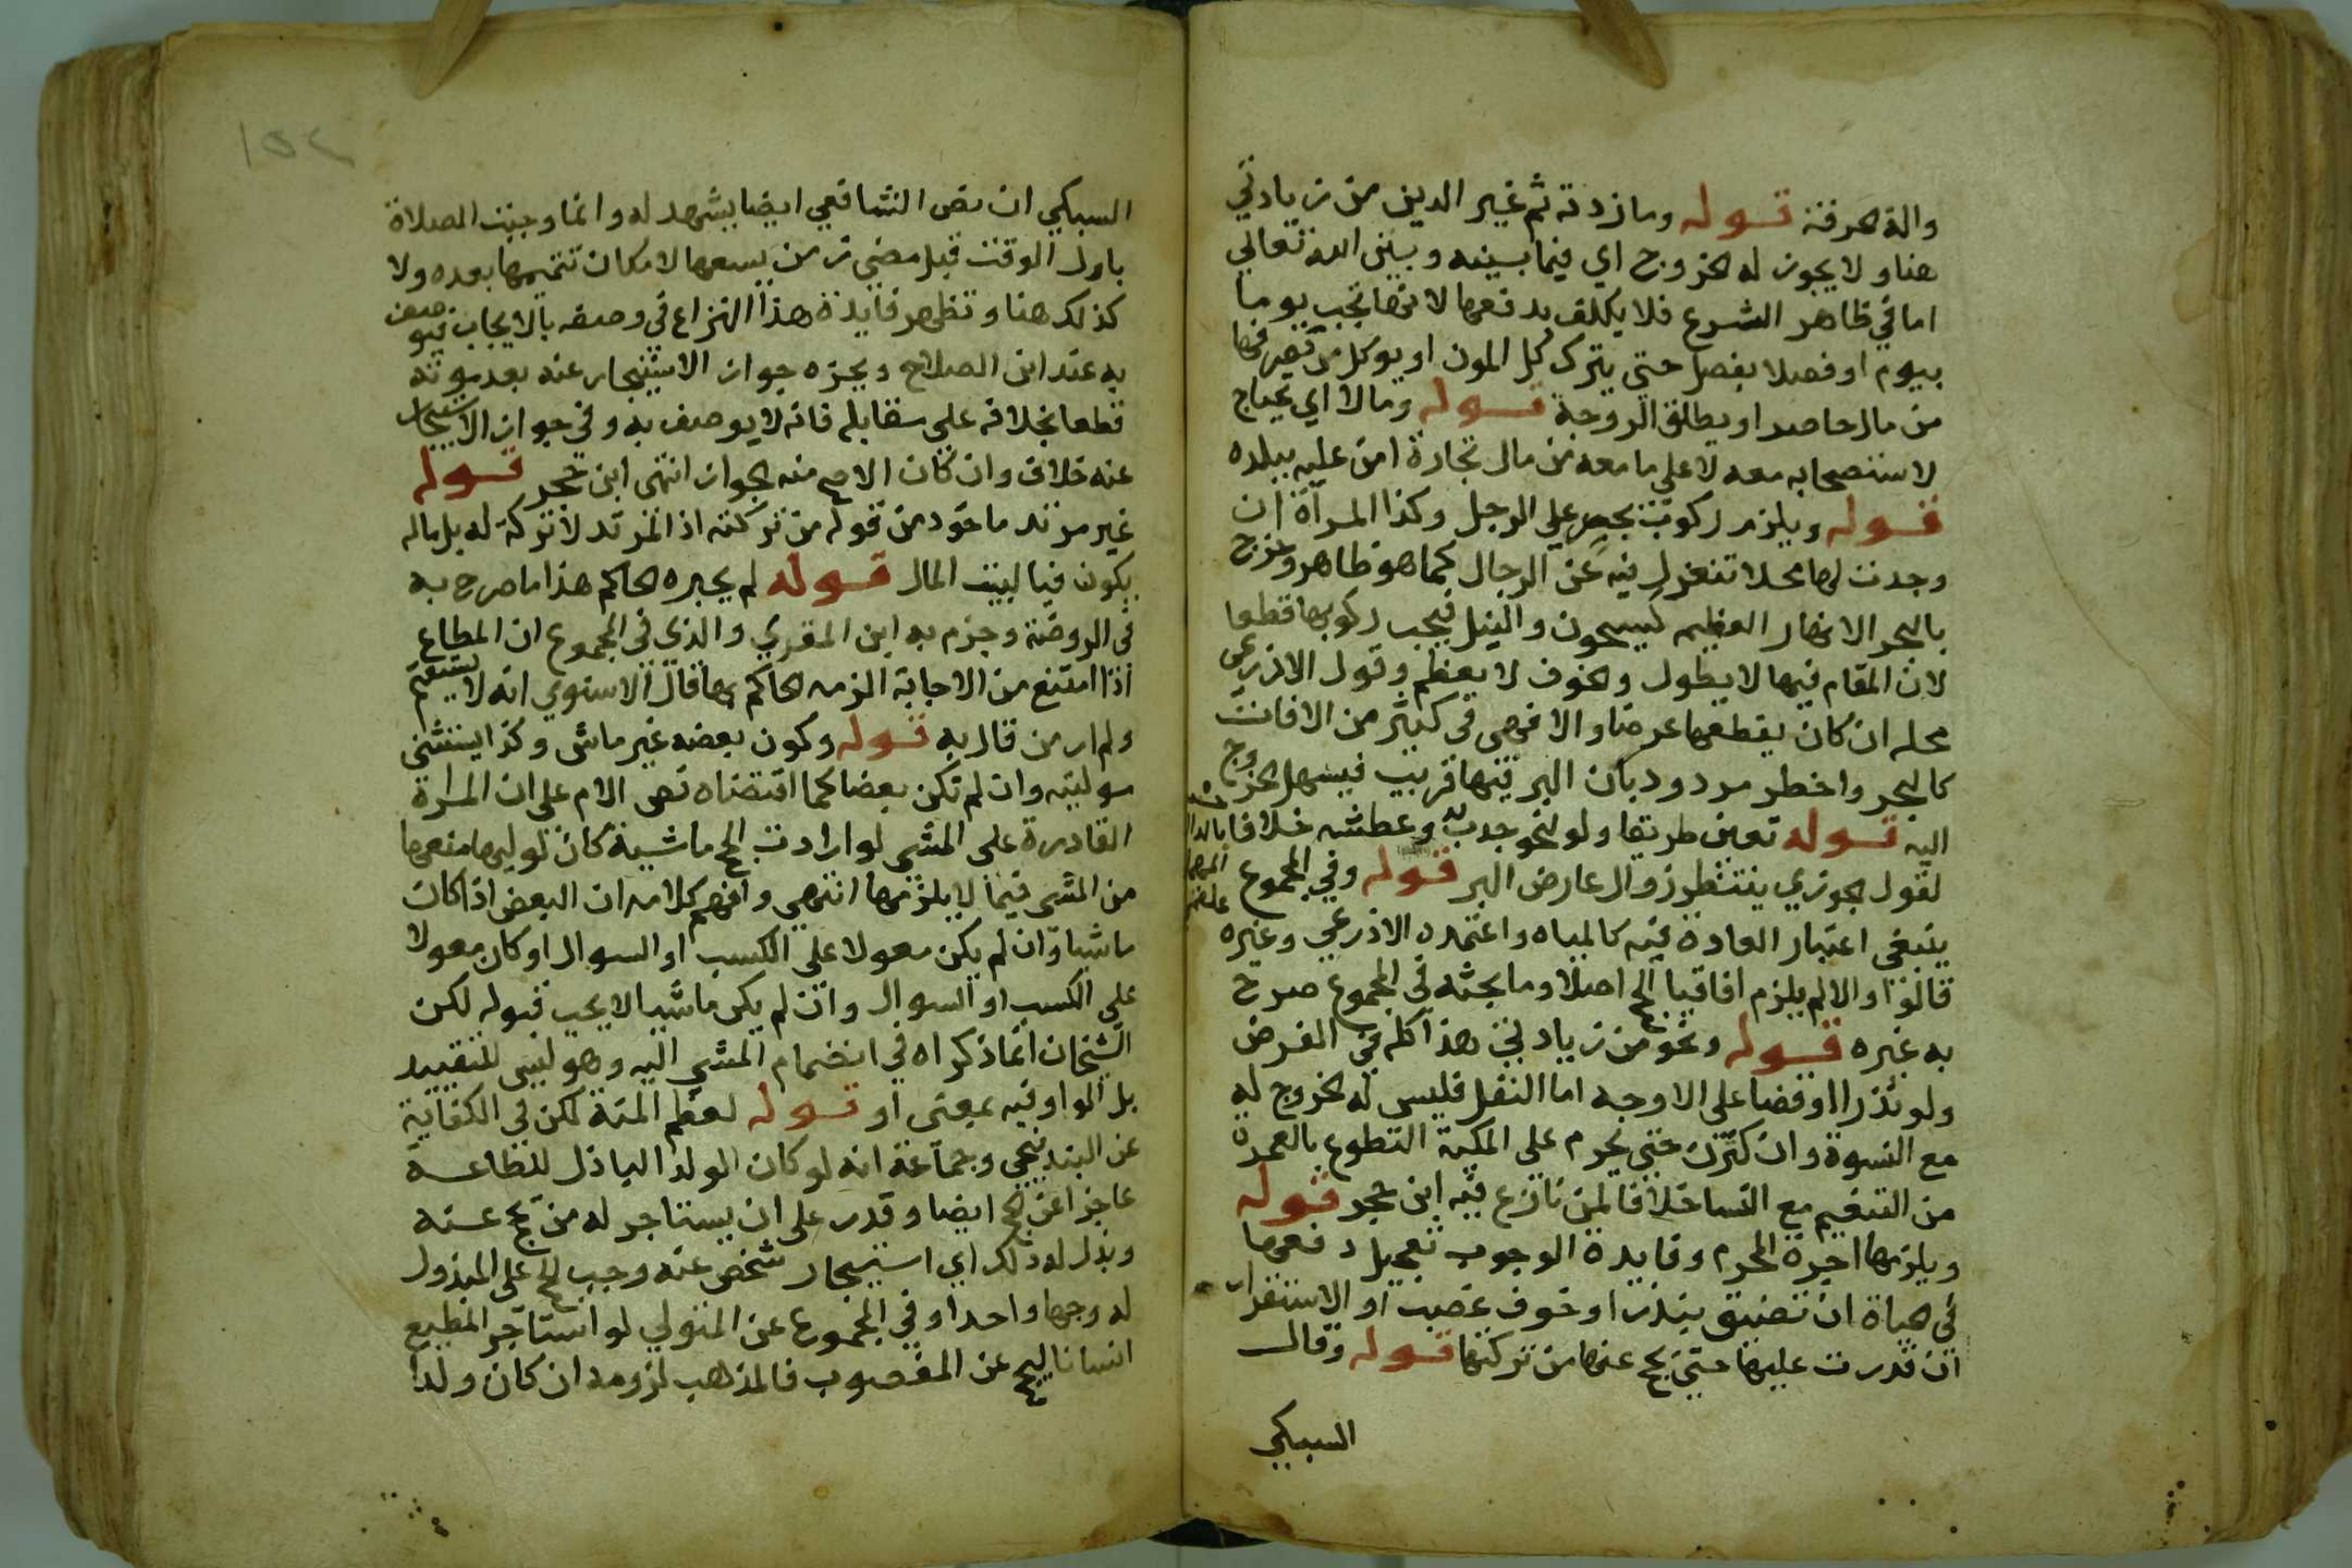 والة حرفته قوله وما زدته ثم غير الدين من زيادتي
هنا ولا يجوز له الخروج اي فيما بينه وبين الله تعالى
اما في ظاهر الشرع فلا يكلف بدفعها لانها تجب يوما
بيوم او فصلا بفصل حتي يترك كل المون او يوكل من يصرفها
من مال حاضر او يطلق الزوجة قوله ومالا اي يحتاج
لاستصحابه معه لا على ما معه من مال تجارة امن عليه ببلده
قوله ويلزم ركوب بحر علي الرجل وكذا المراة ان
وجدت لها محلا تنعزل فيه عن الرجال كما هو ظاهر وخرج
بالبحر الانهار العظيمه كسيحون والنيل فيجب ركوبها قطعا
لان المقام فيها لا يطول والخوف لا يعظم وقول الاذرعي
محله ان كان يقطعها عرضا والا فهي في كثير من الاقات
كالبحر واخطر مردود بان البر فيها قريب فيسهل الخروج
اليه قوله تعين طريقا ولو لنحو جدب وعطش خلافا
لقول الجوزي ينتظر زوال عارض البر قوله وفي المجموع
ينبغي اعتبار العادة فيه كالمياه واعتمده الاذرعي وغيره
قالوا والا لم يلزم افاقيا الحج اصلا وما بحثه في المجموع صرح
به غيره قوله ونحو من زيادتي هذا كله في الفرض
ولو نذرا او قضا على الاوجه اما النفل فليس له الخروج له
مع النسوة وان كثرن حتى يحرم على المكية التطوع بالعمرة
من التنعيم مع النسا خلافا لمن نازع فيه ابن حجر قوله
ويلزمها اجرة المحرم وفايدة الوجوب تعجيل دفعها
في الحياة ان تضيق بنذر او خوف غصب او الاستقرار
ان قدرت عليها حتي يحج عنها من تركتها قوله وقال
السبكي
السبكي ان نص الشافعي ايضا يشهد له وانما وجبت الصلاة
باول الوقت قبل مضي زمن يسعها لامكان تتميمها بعده ولا
كذلك هنا وتظهر فايدة هذا النزاع في وصفه بالايجاب فيوصف
به عند ابن الصلاح ويجزه جواز الاستيجار عنه بعد موته
قطعا بخلافه علي مقابله فانه لا يوصف به وفي جواز الاستيجار
عنه خلاف وان كان الاصح منه الجواز انتهى ابن حجر قوله
غير مرتد ماخوذ من قوله من تركته اذ المرتد لا تركة له بل ماله
يكون فيا لبيت المال قوله لم يجبره الحاكم هذا ما صرح به
في الروضة وجزم به ابن المقري والذي في المجموع ان المطاع
اذا امتنع من الاجابة الزمه الحاكم بها قال الاسنوي انه لا يستقيم
ولم ار من قال به قوله وكون بعضه غير ماش وكذا يستثنى
موليته وان لم تكن بعضا كما اقتضاه نص الام على ان المراة
القادرة على المشي لو ارادت الحج ماشية كان لوليها منعها
من المشي فيما لا يلزمها انتهى وافهم كلامه ان البعض اذا كان
ماشيا وان لم يكن معولا على الكسب او السوال او كان معولا
على الكسب او السوال وان لم يكن ماشيا لا يجب قبوله لكن
الشيخان انما ذكراه في انضمام المشي اليه وهو ليس للتقييد
بل الواو فيه بمعنى او قوله لعظم المنة لكن في الكفاية
عن البندنيجي وجماعة انه لو كان الولد الباذل للطاعة
عاجزا عن الحج ايضا وقدر على ان يستاجر له من يحج عنه
وبذل له ذلك اي استيجار شخص عنه وجب الحج على المبذول
له وجها واحدا وفي المجموع عن المتولي لو استاجر المطيع
انسانا ليحج عن المغصوب فالمذهب لزومه ان كان ولدا